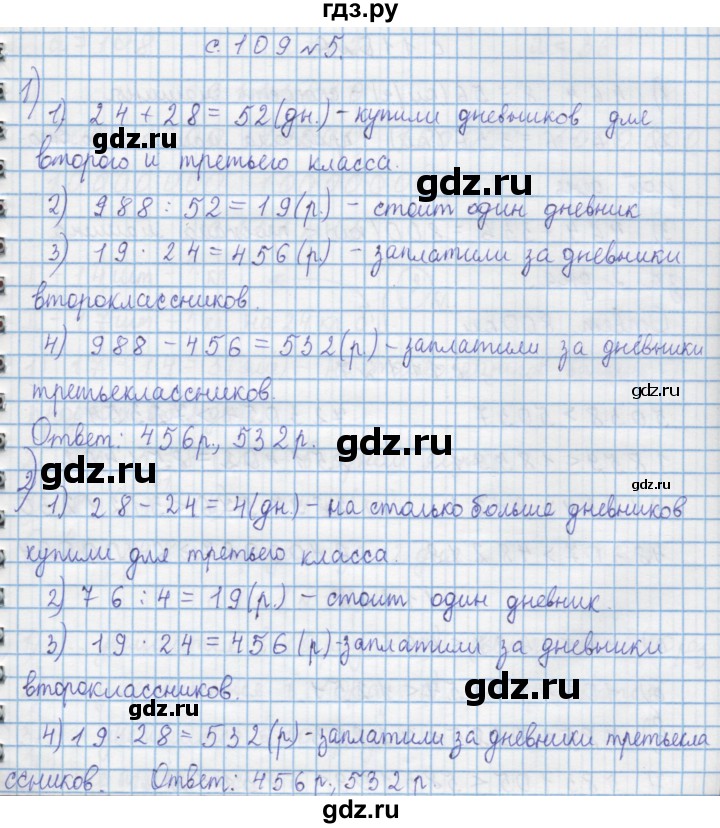 гдз.ру
с. 109 №5.
1)
1) 24 + 28 = 52 (дн.) - купили дневников для
gdz.ru
второго и третьего класса.
gdz.ru
2) 988 : 52 = 19 (р.) - стоит один дневник
3) 19 · 24 = 456 (р) - заплатили за дневники
gdz.ru
второклассников.
4) 988 - 456 = 532 (р) - заплатили за дневники
третьеклассников.
gdz.ru
Ответ: 456 р., 532 р.
gdz.ru
gdz.ru
2)
gdz.ru
1) 28 - 24 = 4 (дн.) - на столько больше дневников
купили для третьего класса.
gdz.ru
2) 76 : 4 = 19 (р.) - стоит один дневник.
3) 19 · 24 = 456 (р) - заплатили за дневники
второклассников.
gdz.ru
gdz.ru
4) 19 · 28 = 532 (р) - заплатили за дневники третьекла
ссников. Ответ: 456 р., 532 р.
gdz.ru